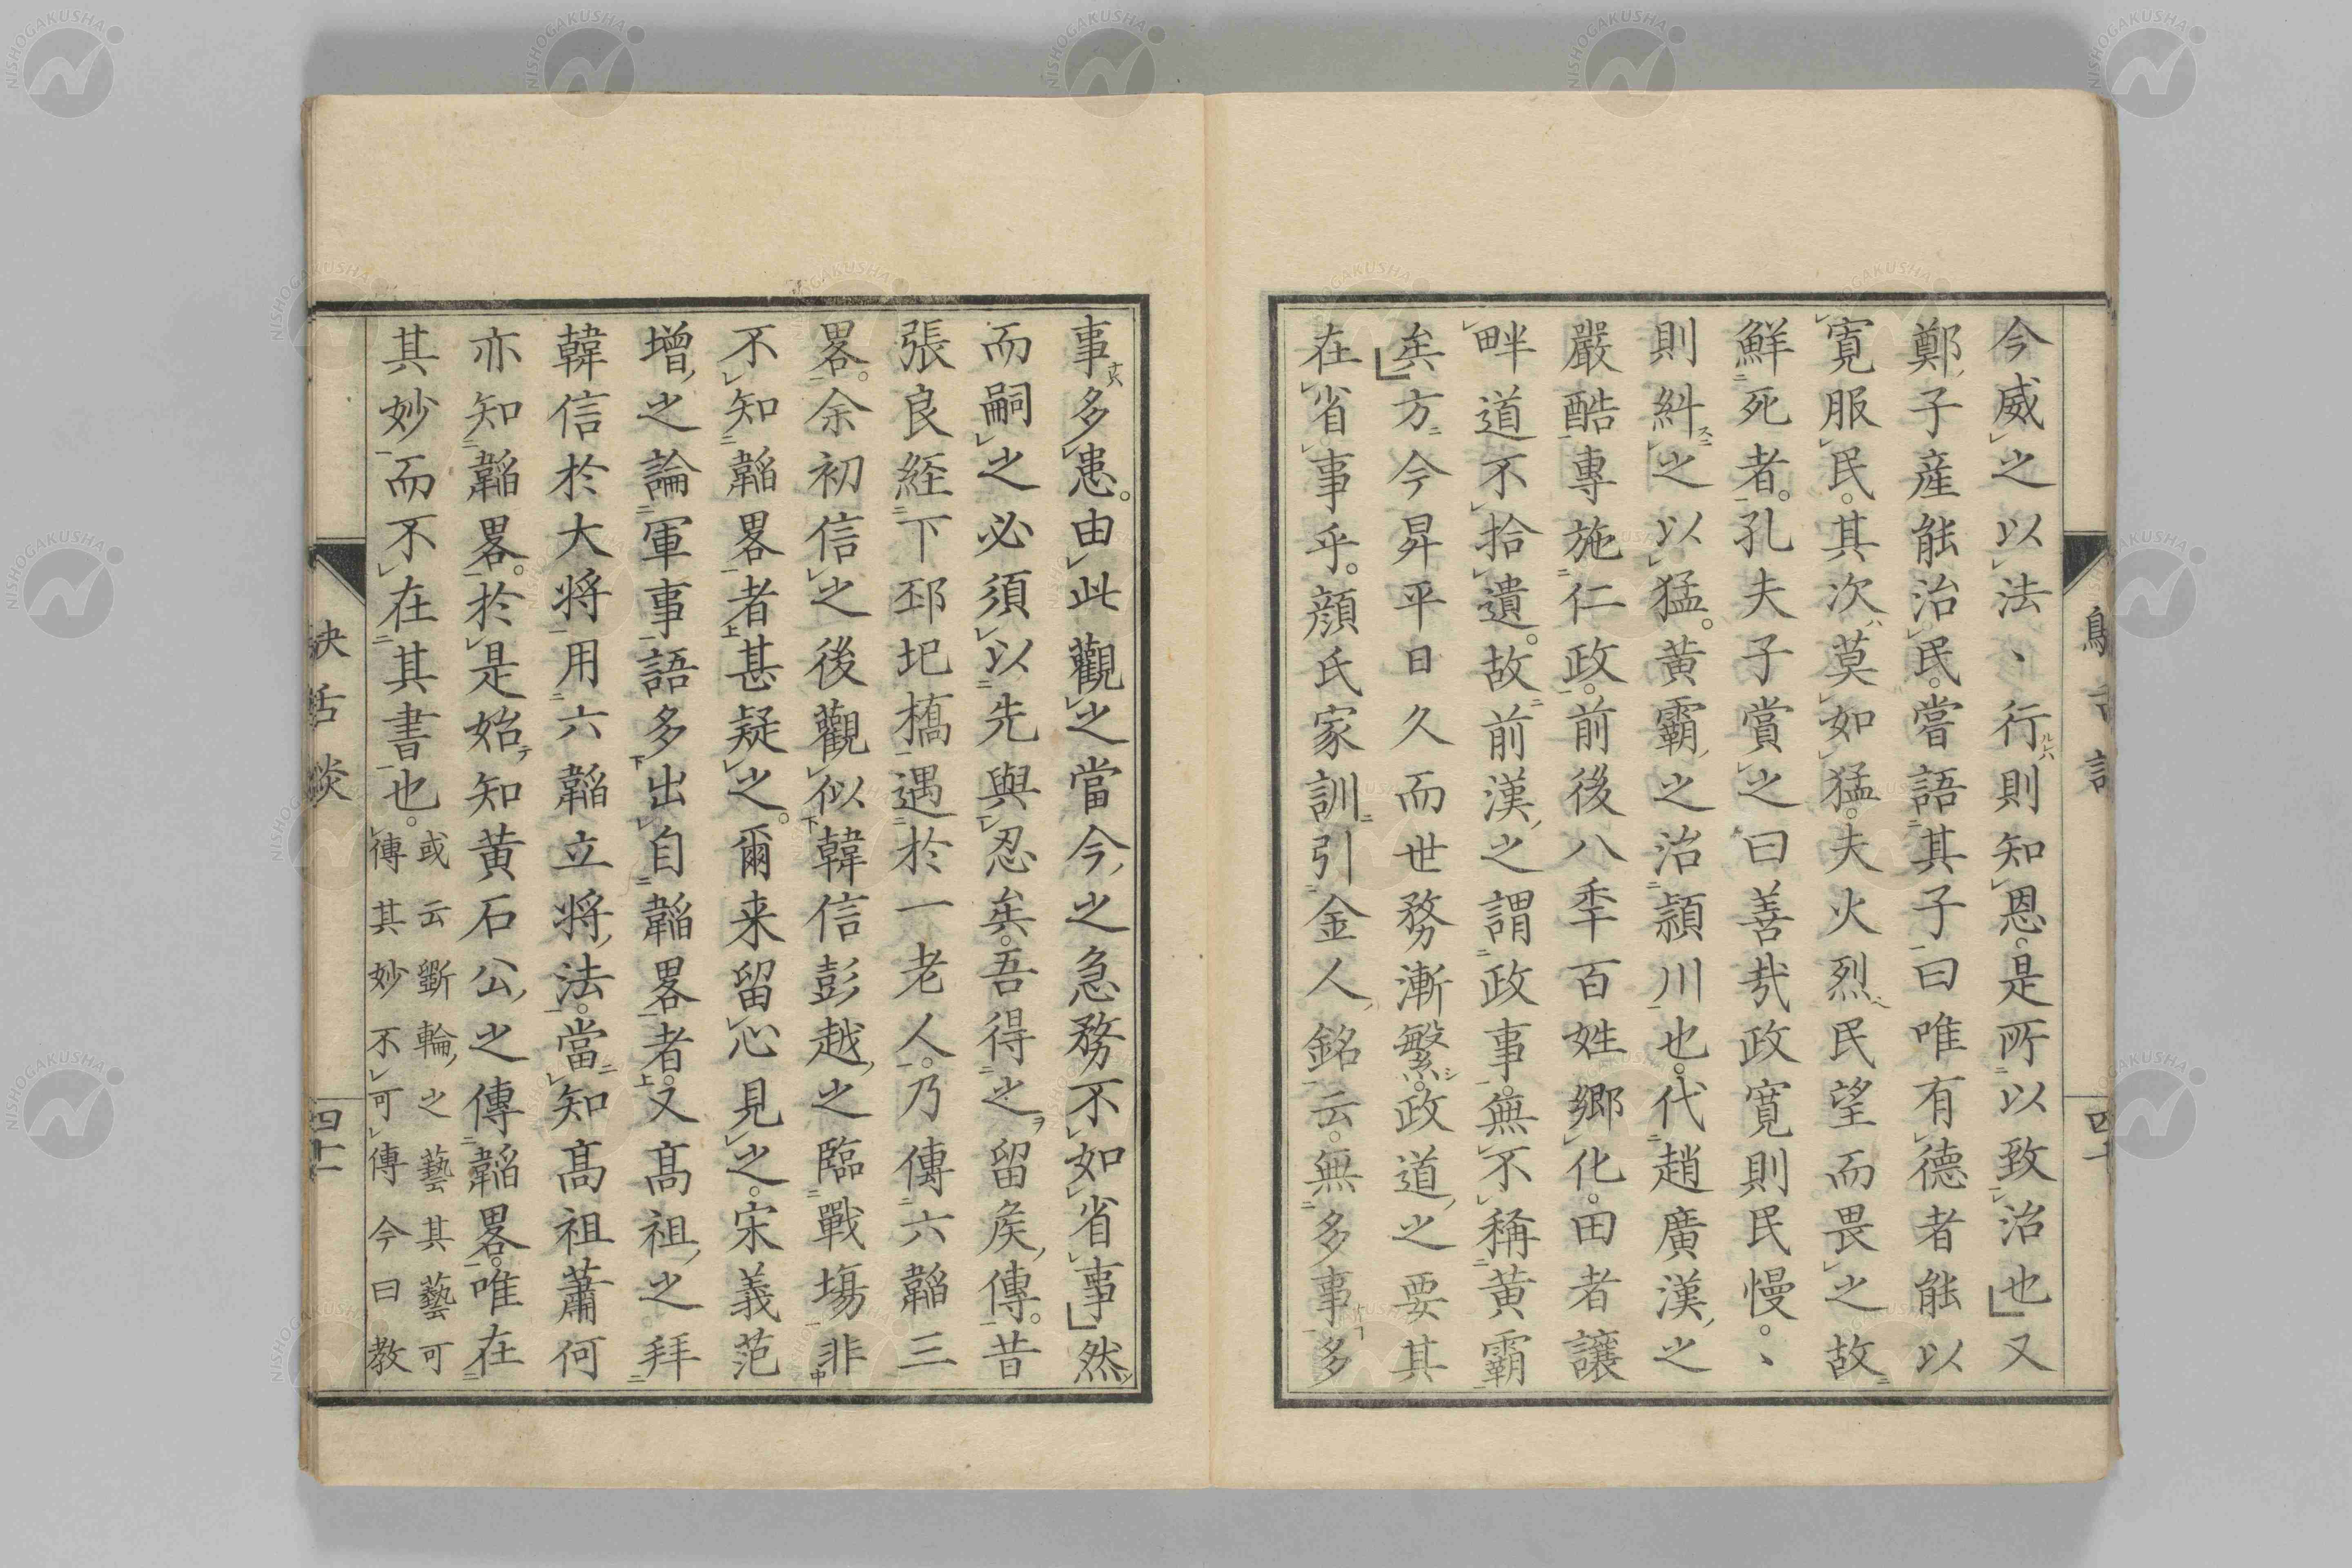 今威之以法、行則知恩。是所以致治也又
鄭子産能治民。嘗語其子曰唯有德者能以
寛服民。其次莫如猛。夫火烈民望而畏之故
鮮死者。孔夫子賞之曰善哉政寛則民慢。、
則糾之以猛。黄霸之治潁川也。代趙廣漢之
嚴酷專施仁政。前後八秊百姓郷化。田者讓
畔道不拾遺。故前漢之謂政事。無不稱黄霸
矣方今昇平日久而世務漸繁。政道之要其
在省事乎。顔氏家訓引金人銘云。無多事多
事多患。由此觀之當今之急務不如省事然
而嗣之必須以先與忍矣。吾得之留矦傳。昔
張良経下邳圯橋遇於一老人。乃傳六韜三
畧。余初信之後觀似韓信彭越之臨戰塲非
不知韜畧者甚疑之。爾来留心見之。宋義范
增之論軍事語多出自韜畧者。又髙祖之拜
韓信於大将用六韜立将法。當知髙祖蕭何
亦知韜畧。於是始知黄石公之傳韜畧。唯在
其妙而不在其書也。
或云斷輪之藝其藝可
傳其妙不可傳今曰教
四十
訣活談
四十一
NISHOGAKUSHA